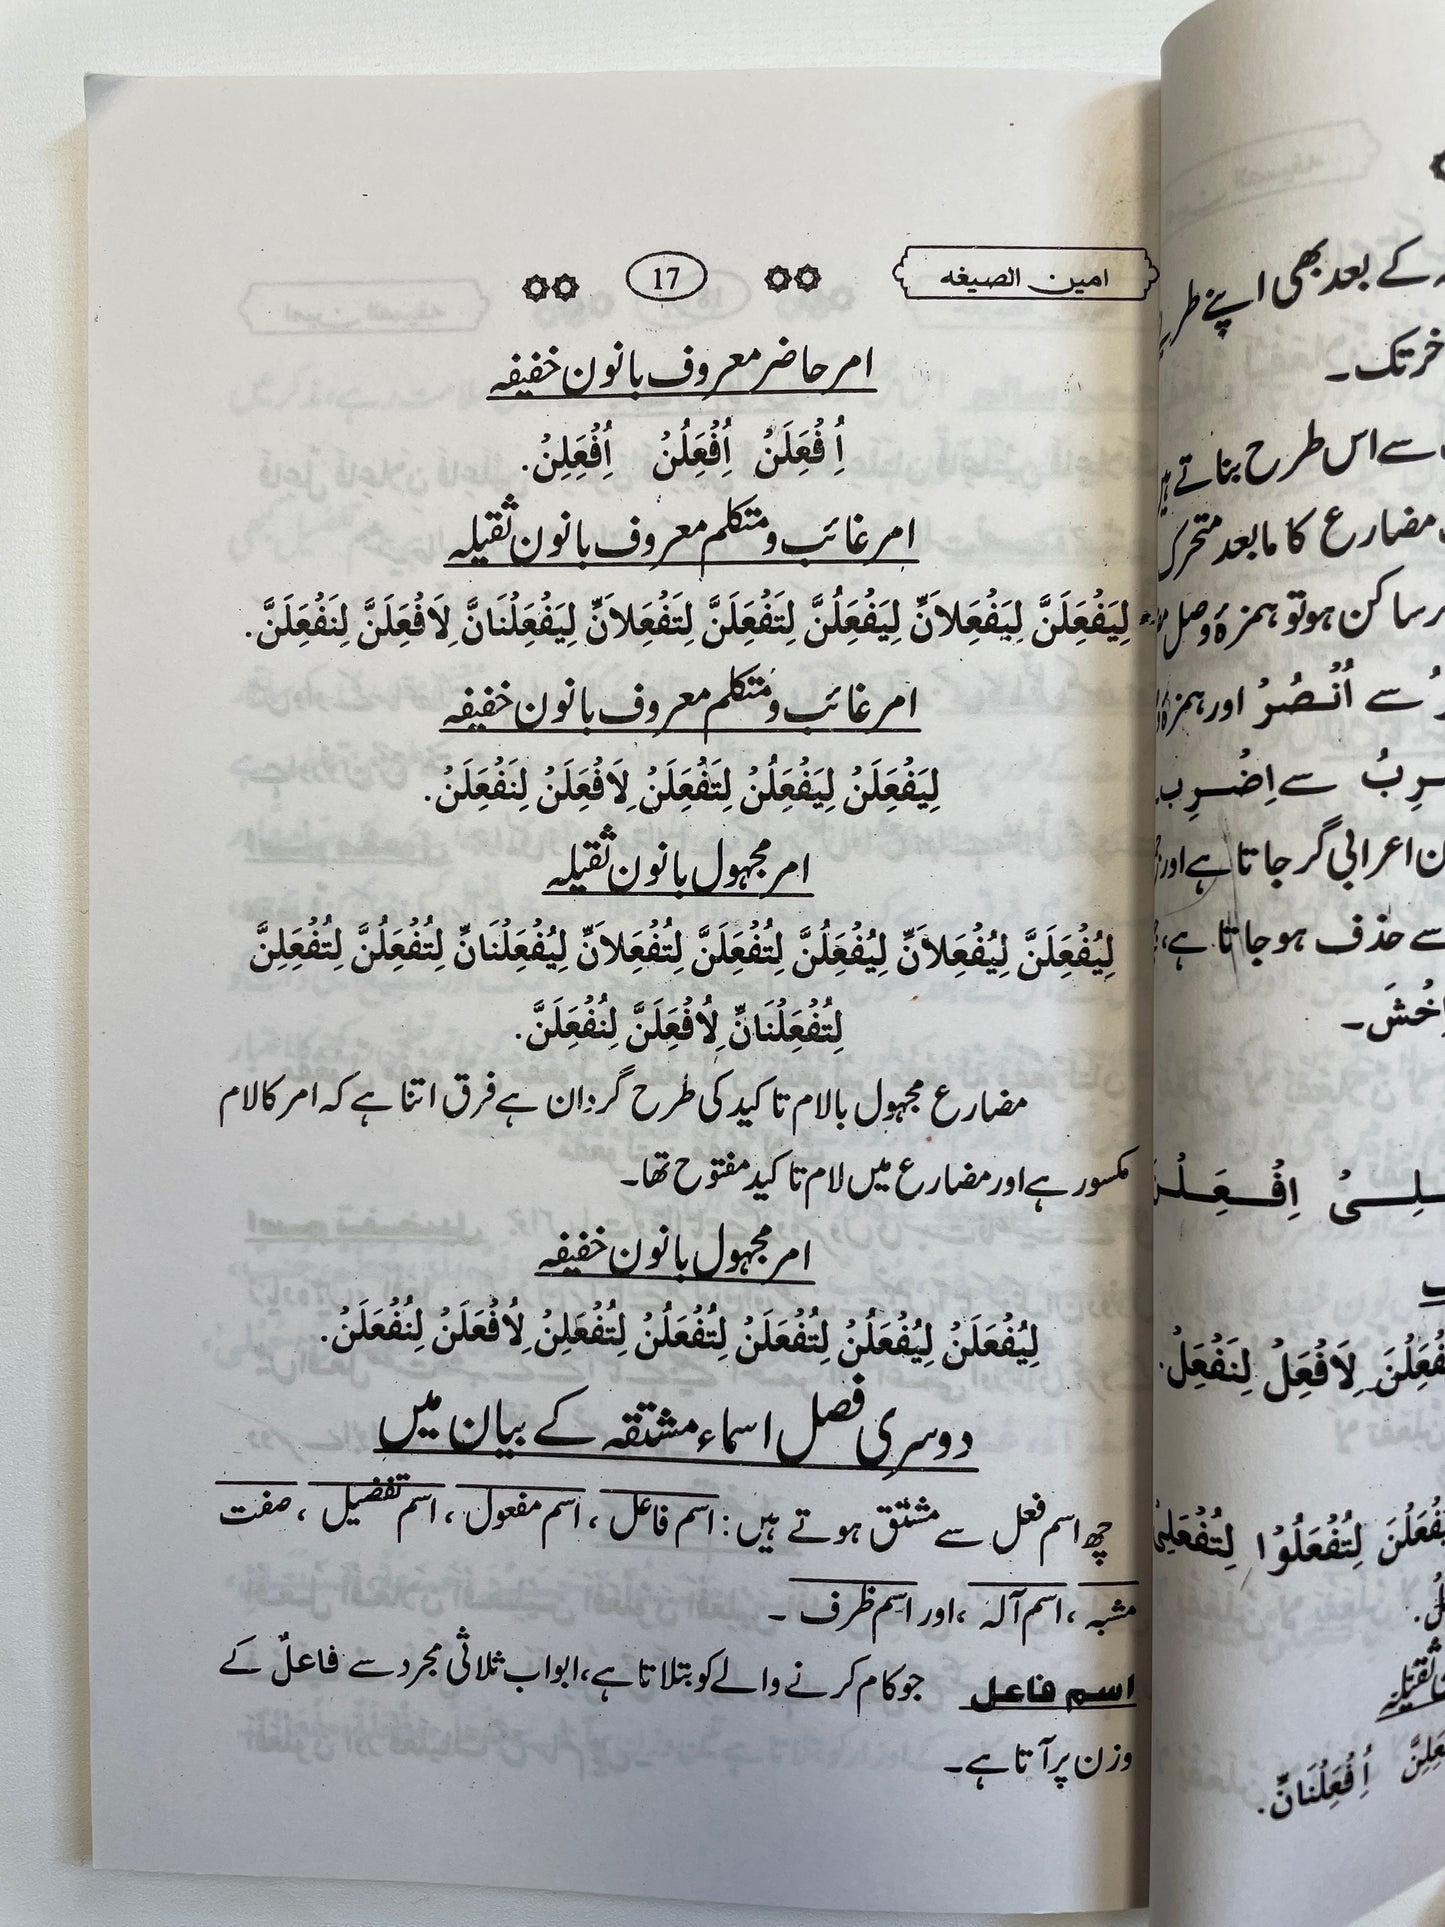 امین الصیغه
17
امر حاضر معروف بانون خفیفہ
اُفْعِلَنْ اُفْعِلُنْ اِفْعِلِنْ.
امر غائب و متکلم معروف بانون ثقیلہ
لِيَفْعِلَنَّ لِيَفْعِلاَنِّ لِيَفْعِلُنَّ لِتَفْعَلَنَّ لِتَفْعَلاَنِّ لِيَفْعِلْنَانَّ لِاَفْعِلَنَّ لِنَفْعِلَنَّ.
امر غائب و متکلم معروف بانون خفیفہ
لِيَفْعِلَنْ لِيَفْعِلُنْ لِتَفْعِلَنْ لِاَفْعِلَنْ لِنَفْعِلَنْ.
امر مجہول بانون ثقیلہ
لِيُفْعِلَنَّ لِيُفْعِلاَنِّ لِيُفْعِلُنَّ لِتُفْعِلَنَّ لِتُفْعِلاَنِّ لِيُفْعِلْنَانِّ لِتُفْعِلُنَّ لِتُفْعِلِنَّ
لِتُفْعِلْنَانِّ لِاُفْعِلَنَّ لِنُفْعِلَنَّ.
مضارع مجہول بالام تاکید کی طرح گردان ہے فرق اتنا ہے کہ امر کا لام
مکسور ہے اور مضارع میں لام تاکید مفتوح تھا۔
امر مجہول بانون خفیفہ
لِيُفْعَلَنْ لِيُفْعَلُنْ لِتُفْعَلَنْ لِتُفْعَلُنْ لِتُفْعَلِنْ لِاُفْعَلَنْ لِنُفْعَلَنْ.
دوسری فصل اسماء مشتقہ کے بیان میں
چھ اسم فعل سے مشتق ہوتے ہیں: اسم فاعل، اسم مفعول، اسم تفضیل، صفت
مشبہ، اسم آلہ، اور اسم ظرف۔
اسم فاعل جو کام کرنے والے کو بتلاتا ہے، ابواب ثلاثی مجرد سے فاعلٌ کے
وزن پر آتا ہے۔
کے بعد بھی اپنے
تک۔
سے اس طرح بناتے ہیں
مضارع کا مابعد متحرک
ساکن ہو تو ہمزہ وصل
سے اُنْصُرْ اور ہمزہ
سے اِضْرِب
اعرابی گر جاتا ہے اور
سے حذف ہو جاتا ہے،
اِفْعِلْنَ
لِاَفْعِلْ لِنَفْعِلْ.
لِتُفْعَلُوْا لِتُفْعَلِيْ
اُفْعِلْنَانِّ.